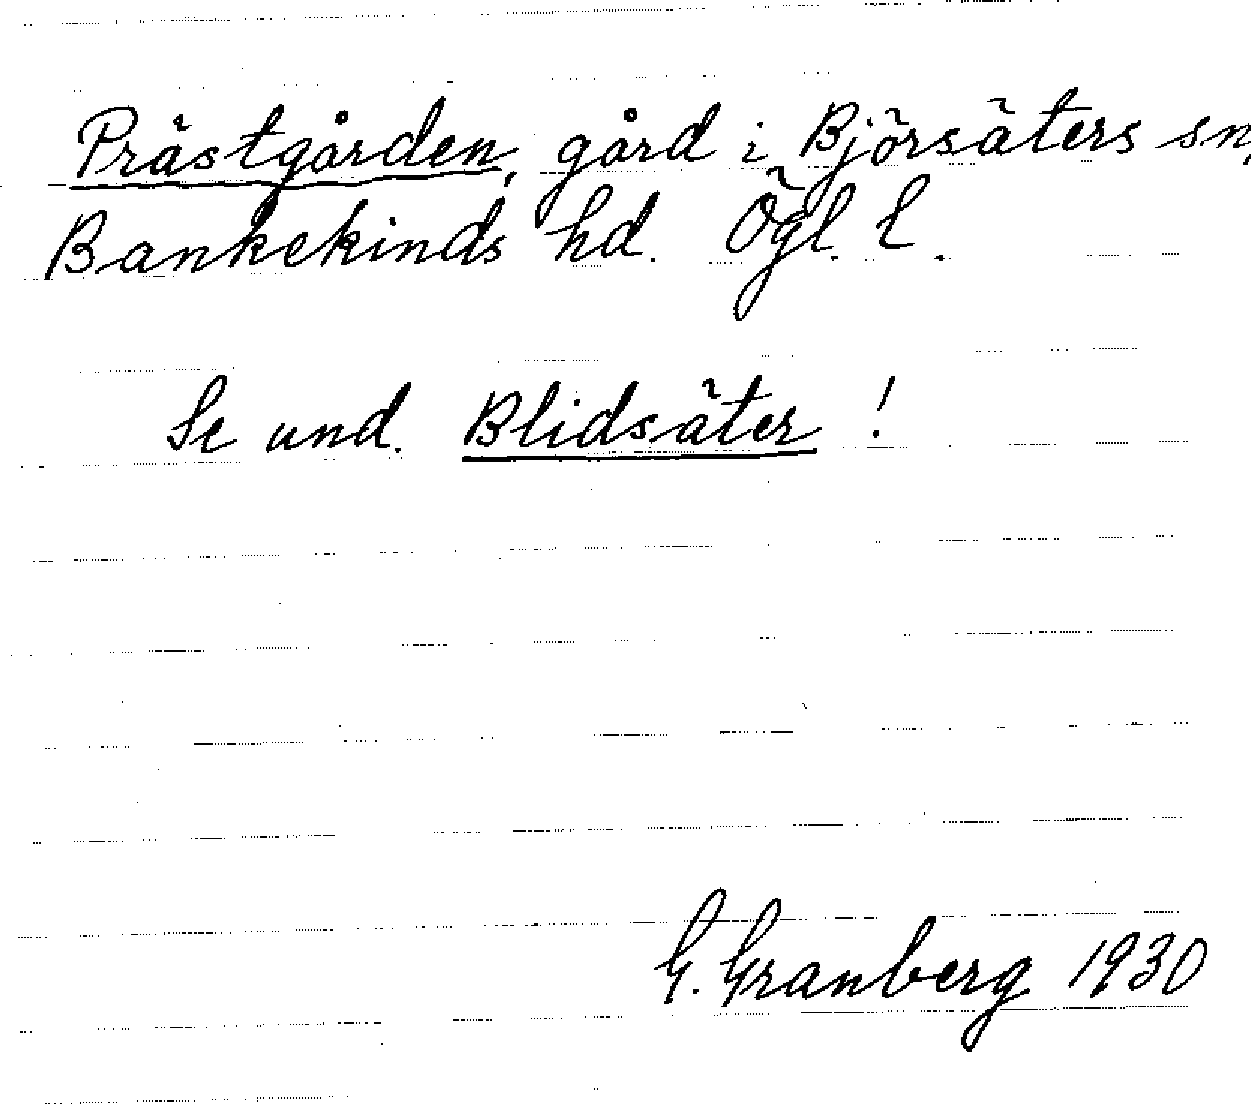 Prästgården, gård i Björsäters sn,
Bankekinds hd. Ögl. l.
Se und. Blidsäter !
G. Granberg 1930